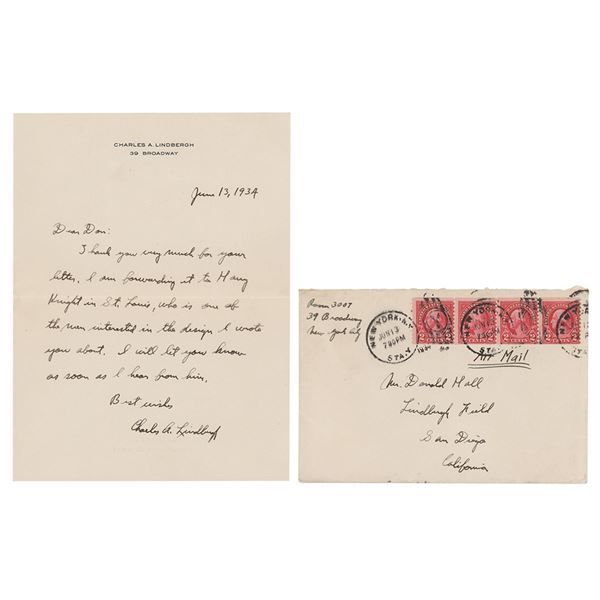 CHARLES A. LINDBERGH
39 BROADWAY
June 13, 1934
Dear Don:
I thank you very much for your
letter. I am forwarding it to Harry
Knight in St. Louis, who is one of
the men interested in the design I wrote
you about. I will let you know
as soon as I hear from him.
Best wishes
Charles A. Lindbergh
Room 3007
39 Broadway
New York City
NEW YORK, N.Y.
JUN 13
7 30 PM
1934
STA. Y
NEW YORK, N.Y.
JUN 13
7 30 PM
STA. Y
Air Mail
Mr. Donald Hall
Lindbergh Field
San Diego
California